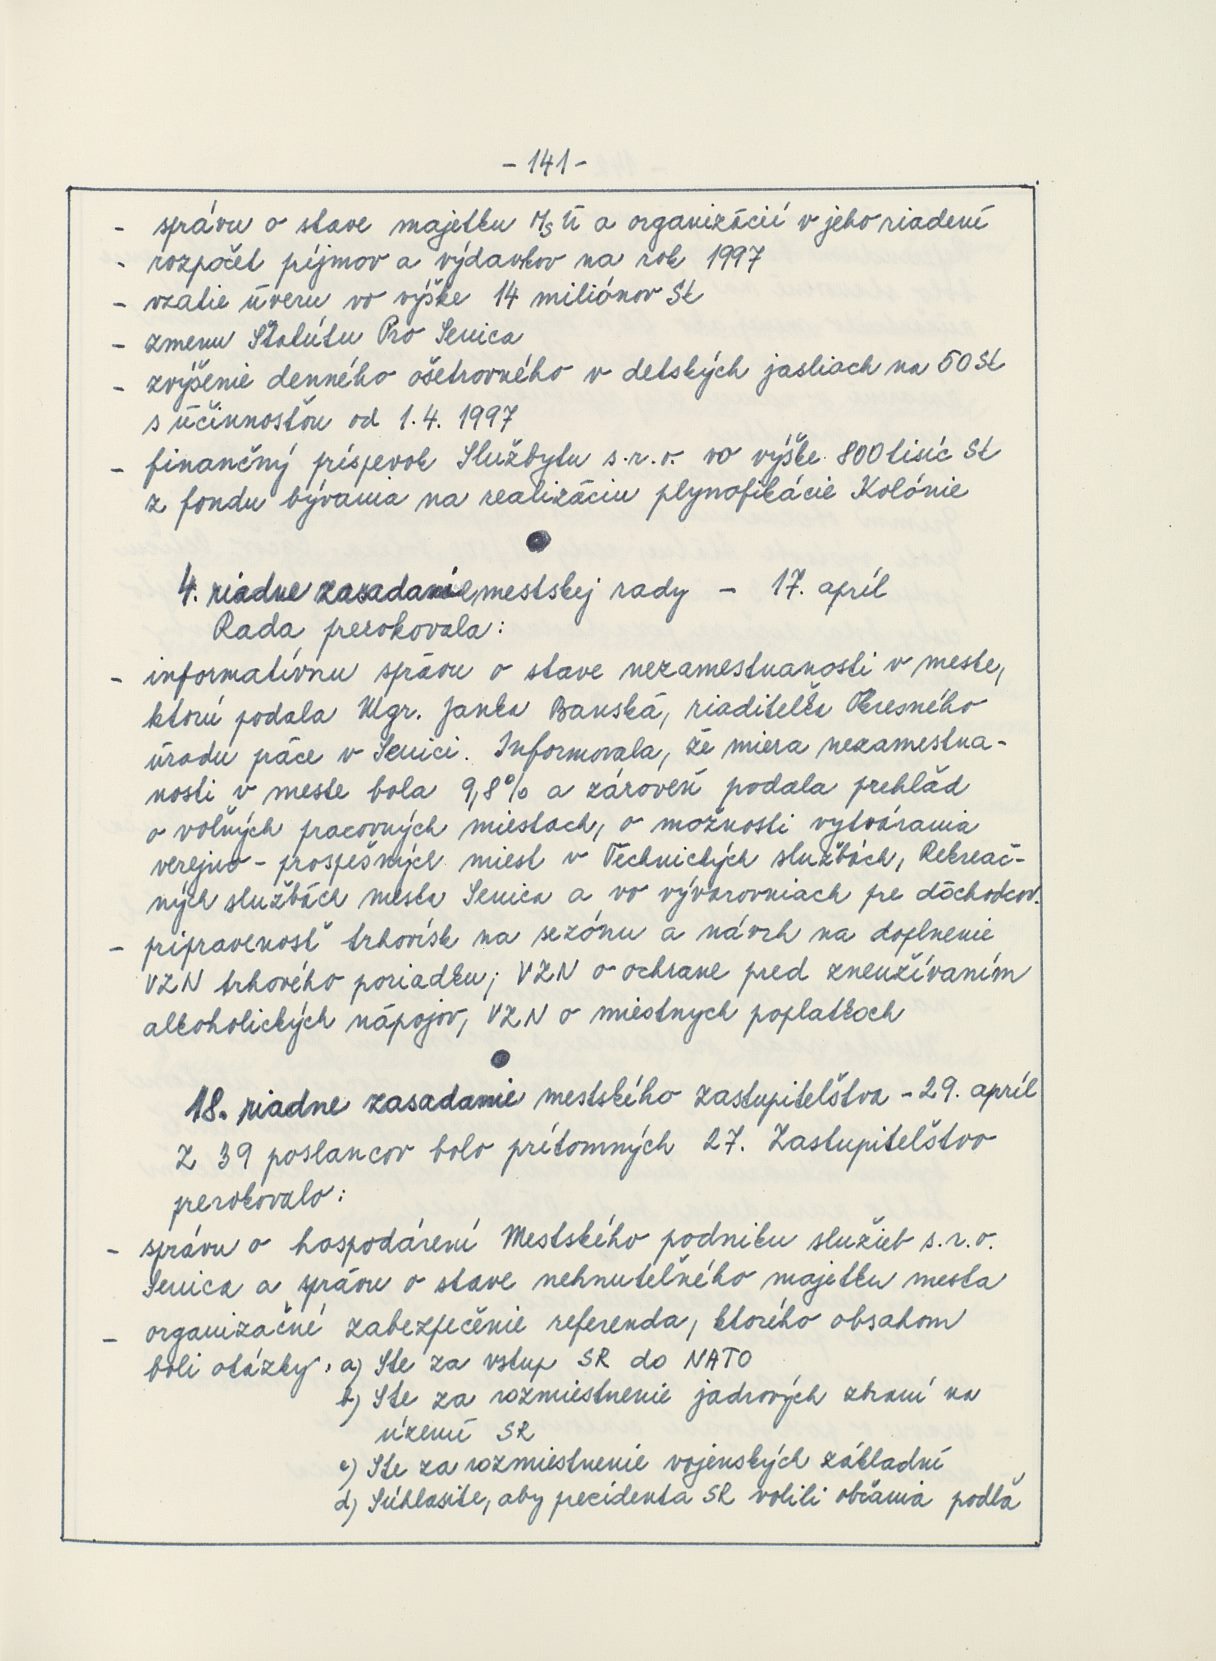 - 141 -
- správu o stave majetku MsÚ a organizácií v jeho riadení
- rozpočet príjmov a výdavkov na rok 1997
- vzatie úveru vo výške 14 miliónov Sk
- zmenu Štatútu Pro Senica
- zvýšenie denného ošetrovného v detských jasliach na 50 Sk
s účinnosťou od 1.4. 1997
- finančný príspevok Službytu s.r.o. vo výške 800 tisíc Sk
z fondu bývania na realizáciu plynofikácie Kolónie
4. riadne zasadanie mestskej rady - 17. apríl
Rada prerokovala:
- informatívnu správu o stave nezamestnanosti v meste,
ktorú podala Mgr. Janka Banská, riaditeľka Okresného
úradu práce v Senici. Informovala, že miera nezamestna-
nosti v meste bola 9,8% a zároveň podala prehľad
o voľných pracovných miestach, o možnosti vytvárania
verejno - prospešných miest v Technických službách, Rekreač-
ných službách mesta Senica a vo vývarovniach pre dôchodcov.
- pripravenosť trhovísk na sezónu a návrh na doplnenie
VZN trhového poriadku, VZN o ochrane pred zneužívaním
alkoholických nápojov, VZN o miestnych poplatkoch
18. riadne zasadanie mestského zastupiteľstva - 29. apríl
Z 39 poslancov bolo prítomných 27. Zastupiteľstvo
prerokovalo:
- správu o hospodárení Mestského podniku služieb s.r.o.
Senica a správu o stave nehnuteľného majetku mesta
- organizačné zabezpečenie referenda, ktorého obsahom
boli otázky: a) Ste za vstup SR do NATO
b) Ste za rozmiestnenie jadrových zbraní na
území SR
c) Ste za rozmiestnenie vojenských základní
d) Súhlasíte, aby prezidenta SR volili občania podľa